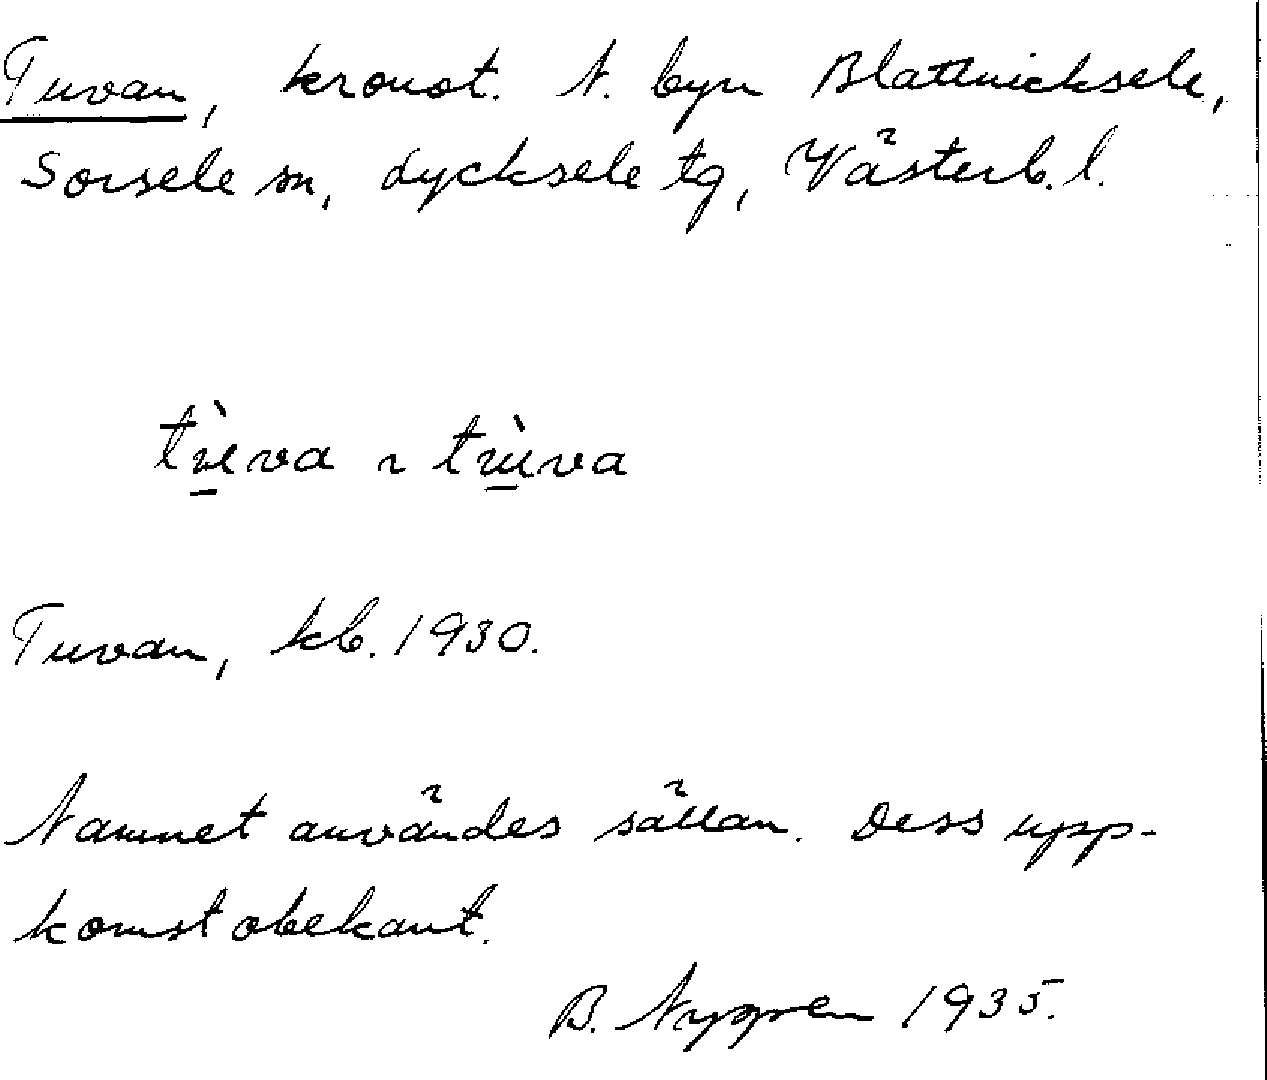 Tuvan, kronot. N. byn Blattnicksele,
Sorsele sn, Lycksele tg, Västerb. l.
Tuvan, kb. 1930.
Namnet användes sällan. Dess upp-
komst obekant.
B. Nygren 1935.